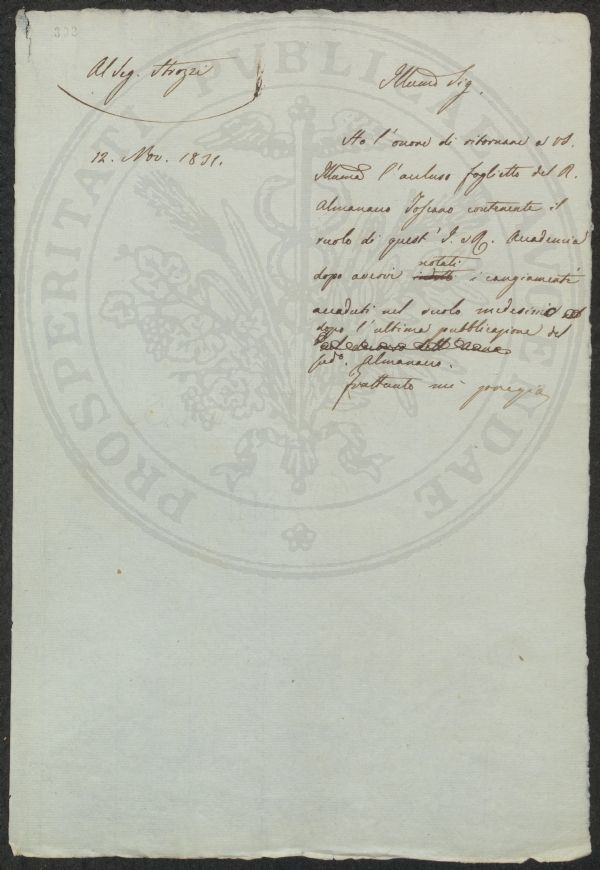 303
Al Sig. Strozzi
12. Nov. 1831.
Illmo Sig.
Ho l'onore di ritornare a VS.
Illma l'accluso foglietto del R.
Almanacco Toscano contenente il
ruolo di quest' I. e R. Accademia
notati
dopo avervi i cangiamenti
accaduti nel ruolo medesimo
dopo l'ultima pubblicazione del
sud.o Almanacco.
Frattanto mi pregio
PROSPERITATI PUBLICAE AUGENDAE